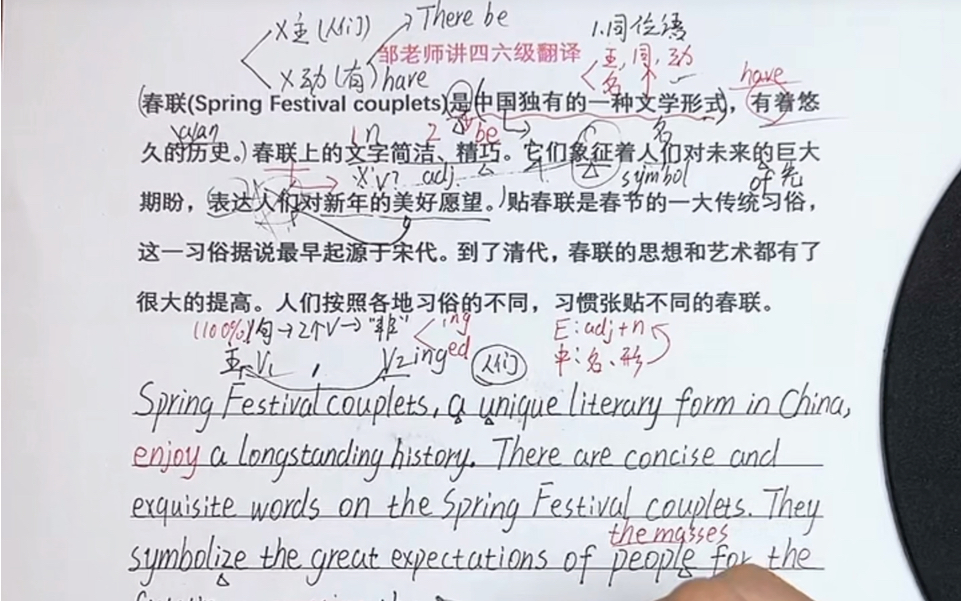 X主(人们) There be 1.同位语
邹老师讲四六级翻译 主,同,动
X动(有) have 名 have
(春联(Spring Festival couplets)是(中国独有的一种文学形式),有着悠
1 n 2 be 名
久的历史。)春联上的文字简洁、精巧。它们象征着人们对未来的巨大
X V? adj. symbol of 先
期盼,(表达人们对新年的美好愿望。)贴春联是春节的一大传统习俗,
这一习俗据说最早起源于宋代。到了清代,春联的思想和艺术都有了
很大的提高。人们按照各地习俗的不同,习惯张贴不同的春联。
(100%)1句→2个V→"非" ing E:adj+n
主V1 , V2ing ed 人们 中:名、形
Spring Festival couplets, a unique literary form in China,
enjoy a longstanding history. There are concise and
exquisite words on the Spring Festival couplets. They
the masses
symbolize the great expectations of people for the